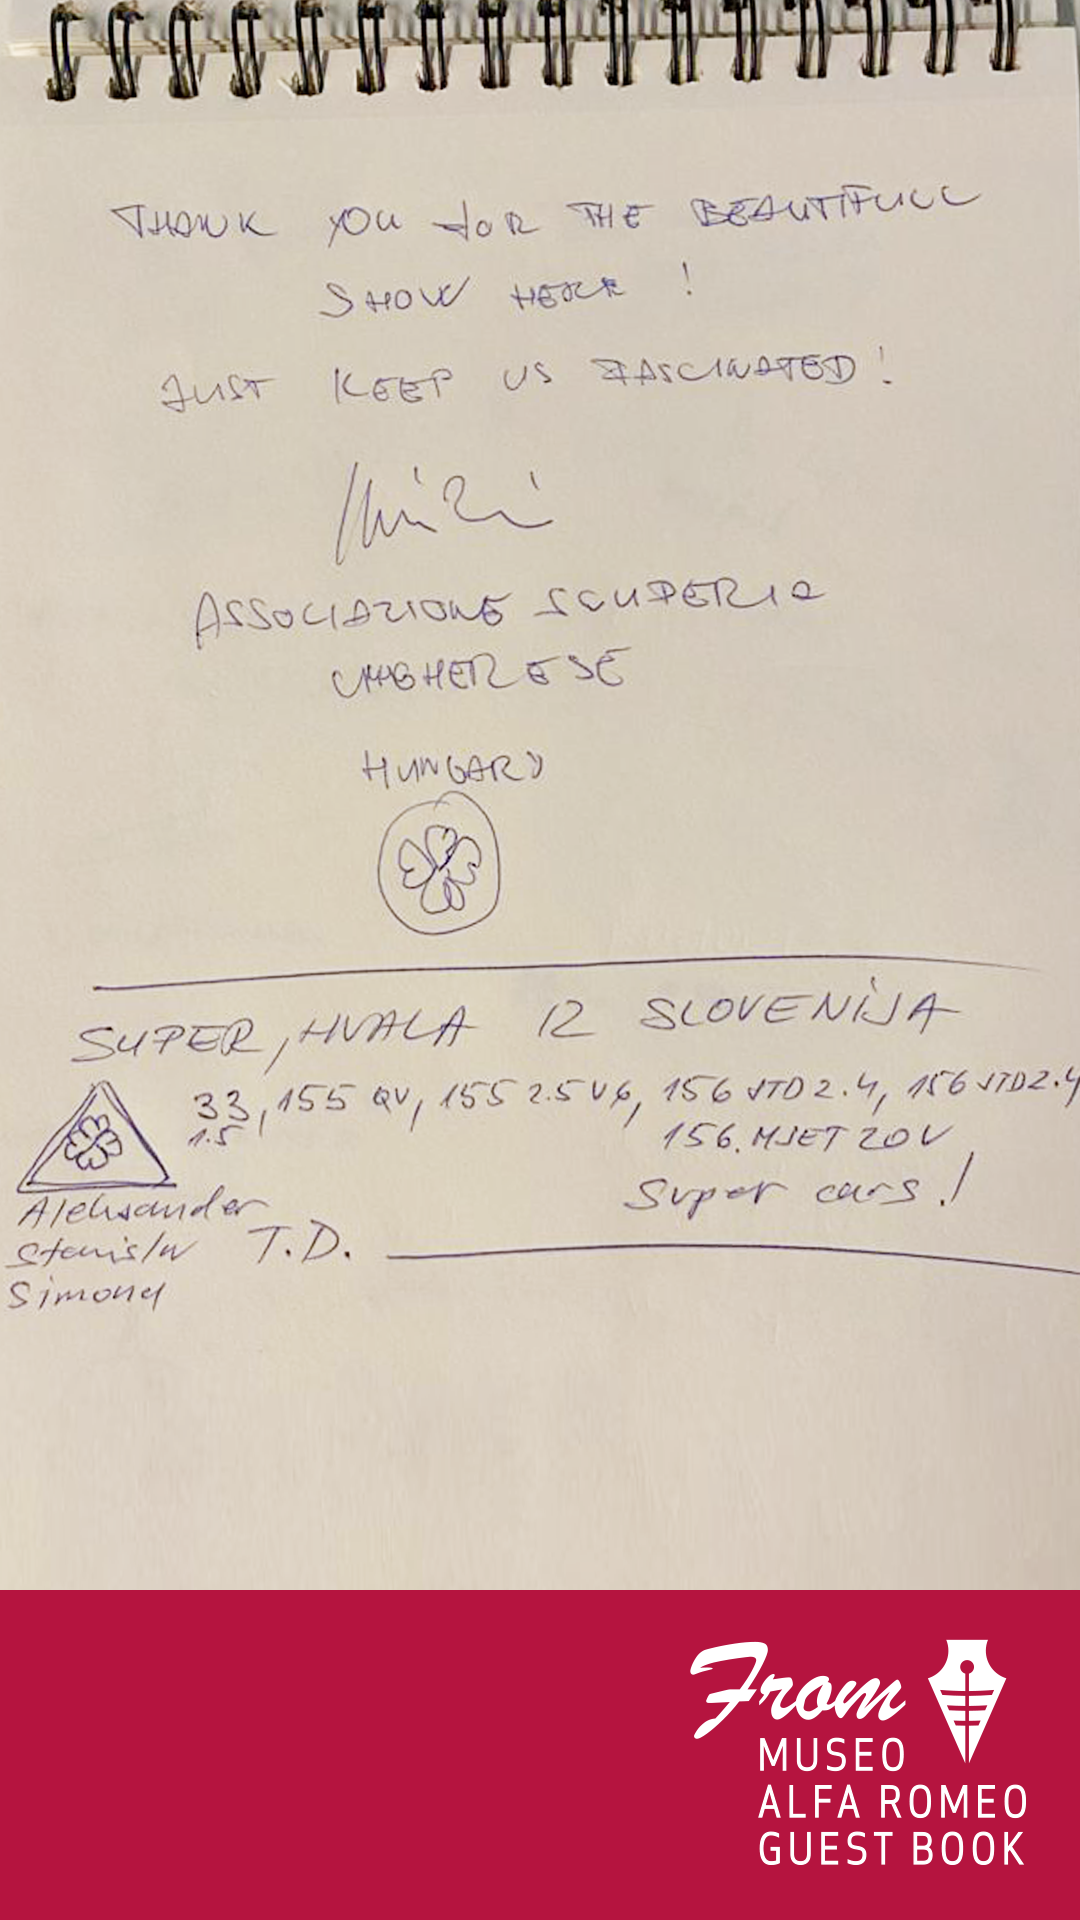 THANK YOU FOR THE BEAUTIFULL
SHOW HERE !
JUST KEEP US FASCINATED!
ASSOCIAZIONE SCUDERIA
UNGHERESE
HUNGARY
SUPER, HVALA IZ SLOVENIJA
33, 155 QV, 155 2.5 V6, 156 JTD 2.4, 156 JTD 2.4
1.5
156. MJET 20V
Super cars!
Aleksander
Stanislw T.D.
Simona
From
MUSEO
ALFA ROMEO
GUEST BOOK